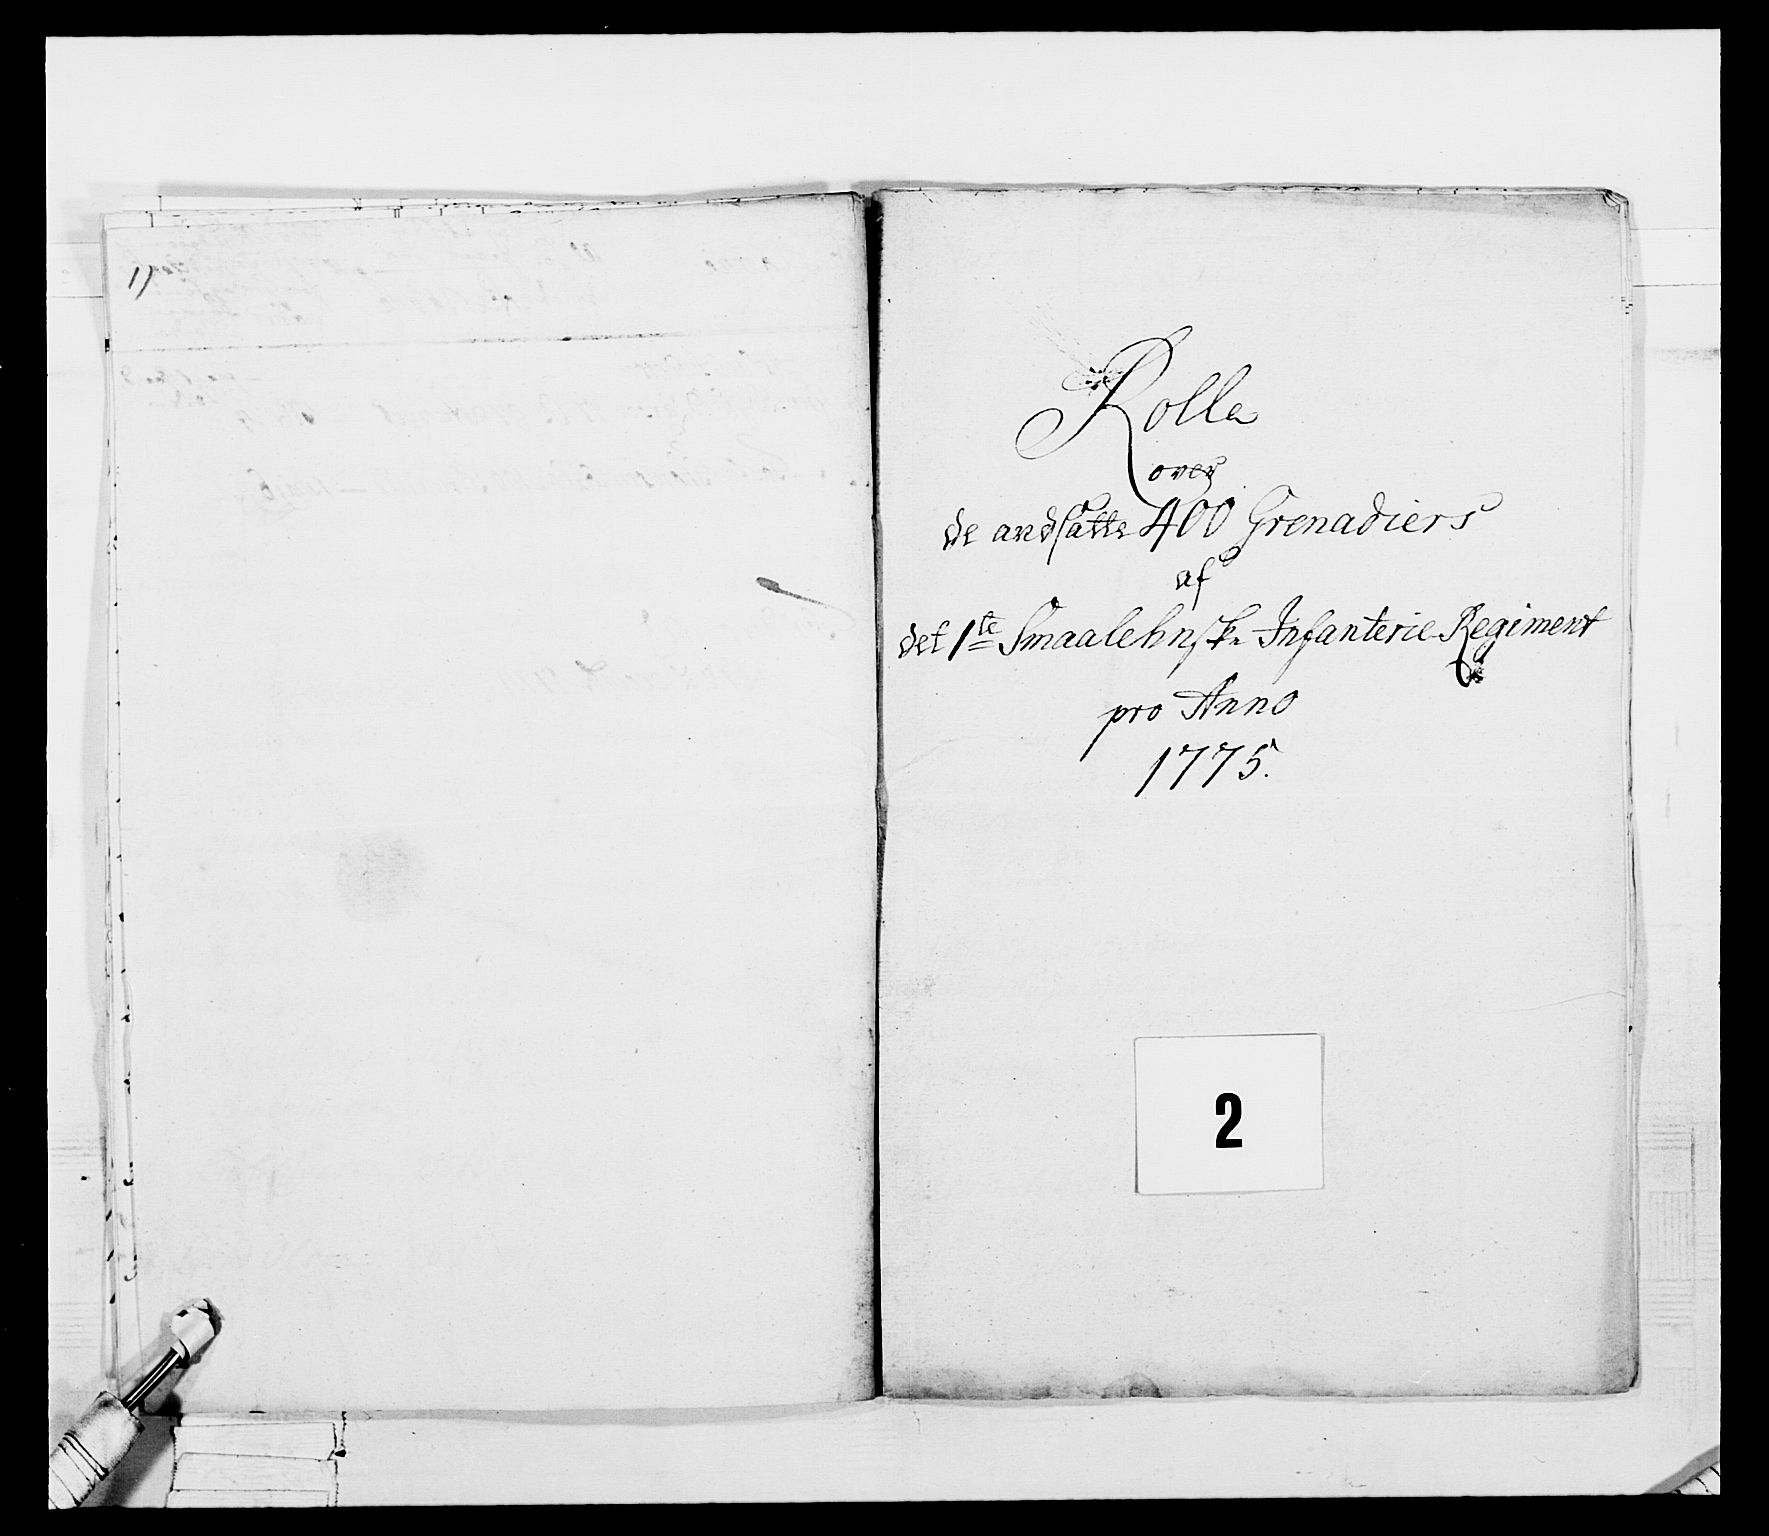 17
Rolla
over
de andsatte 400 Grenadiers
af
det 1ste Smaalehnske Infanterie Regiment
pro Anno
1775.
2